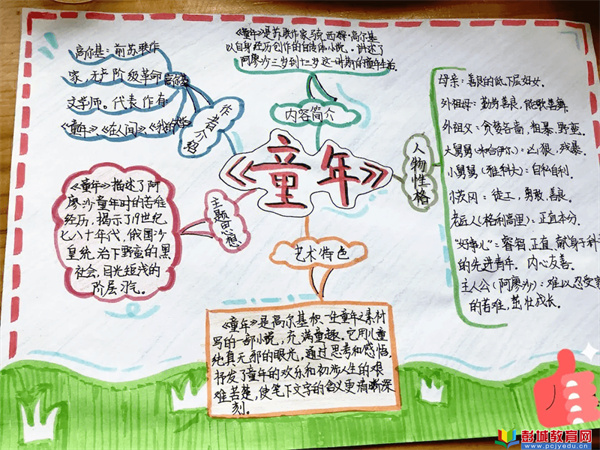 《童年》
作者介绍
高尔基：前苏联作
家，无产阶级革命
文学师。代表作有
《童年》《在人间》《我的大学》
内容简介
《童年》是苏联作家马克西姆·高尔基
以自身经历创作的自传体小说。讲述了
阿廖沙三岁到十岁这一时期的童年生活。
人物性格
母亲：善良的低下层妇女。
外祖母：勤劳善良，能歌善舞。
外祖父：贪婪吝啬，粗暴，野蛮。
凶狠，残暴。
小舅舅（雅科夫）：自私自利。
小茨冈：徒工，勇敢，善良。
老匠人（格利高里）：正直本分。
"好事儿"：容貌正直，献身于科学
的先进青年。内心友善。
主人公（阿廖沙）：难以忍受家
的苦难，茁壮成长。
主题思想
《童年》描述了阿
廖沙童年时的苦难
经历，揭示了19世纪
七八十年代，俄国沙
皇统治下野蛮的黑
社会，目光短浅的
阶层习气。
艺术特色
《童年》是高尔基根一生童年之素材
写的一部小说，充满童趣。它用儿童
纯真无邪的眼光，通过思考和感悟，
抒发了童年的欢乐和初涉人生的艰
难苦楚，使笔下文字的含义更清晰深
刻。
彭城教育网
www.pcjyedu.cn